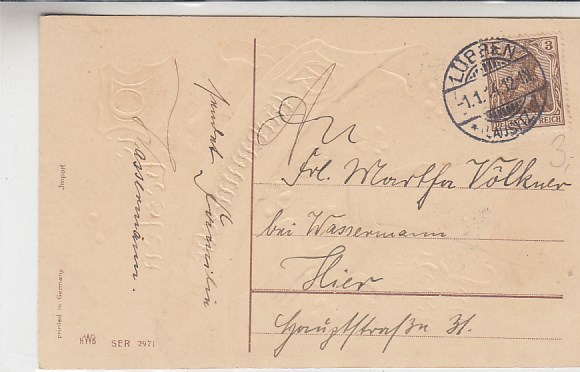 sendet Familie
Wassermann.
LÜBBEN
-1.1.14.12-1N
* (LAUSITZ)
3
REICH
3,-
An
Frl. Martha Völkner
bei Wassermann
Hier
Hauptstraße 31.
Import
printed in Germany
SER 2971